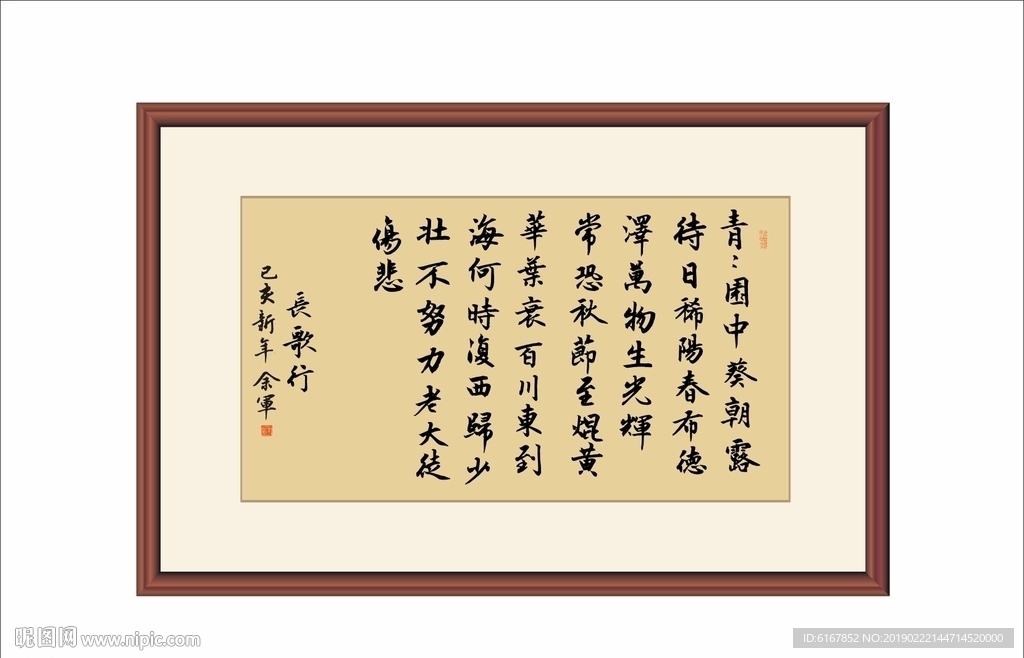 青〻園中葵朝露
待日稀陽春布德
澤萬物生光輝
常恐秋節至焜黃
華葉衰百川東到
海何時復西歸少
壯不努力老大徒
傷悲
長歌行
己亥新年余軍
昵图网 www.nipic.com
ID:6167852 NO:20190222144714520000